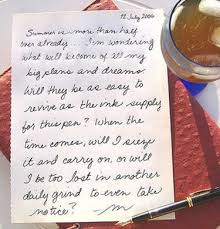 12 July 2006
Summer is more than half
over already.... I'm wondering
what will become of all my
big plans and dreams.
Will they be as easy to
revive as the ink supply
for this pen? When the
time comes, will I seize
it and carry on, or will
I be too lost in another
daily grind to even take
notice?